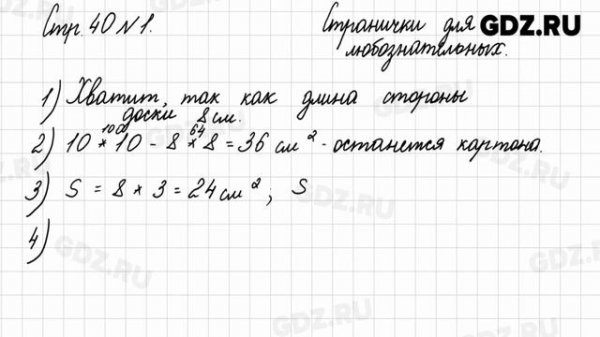 Стр. 40 № 1.
Странички для
любознательных.
GDZ.RU
1) Хватит, так как длина стороны
доски 8 см.
100 64
2) 10 * 10 - 8 * 8 = 36 см² - останется картона.
3) S = 8 * 3 = 24 см²; S
4)
GDZ.RU
GDZ.RU
GDZ.RU
GDZ.RU
GDZ.RU